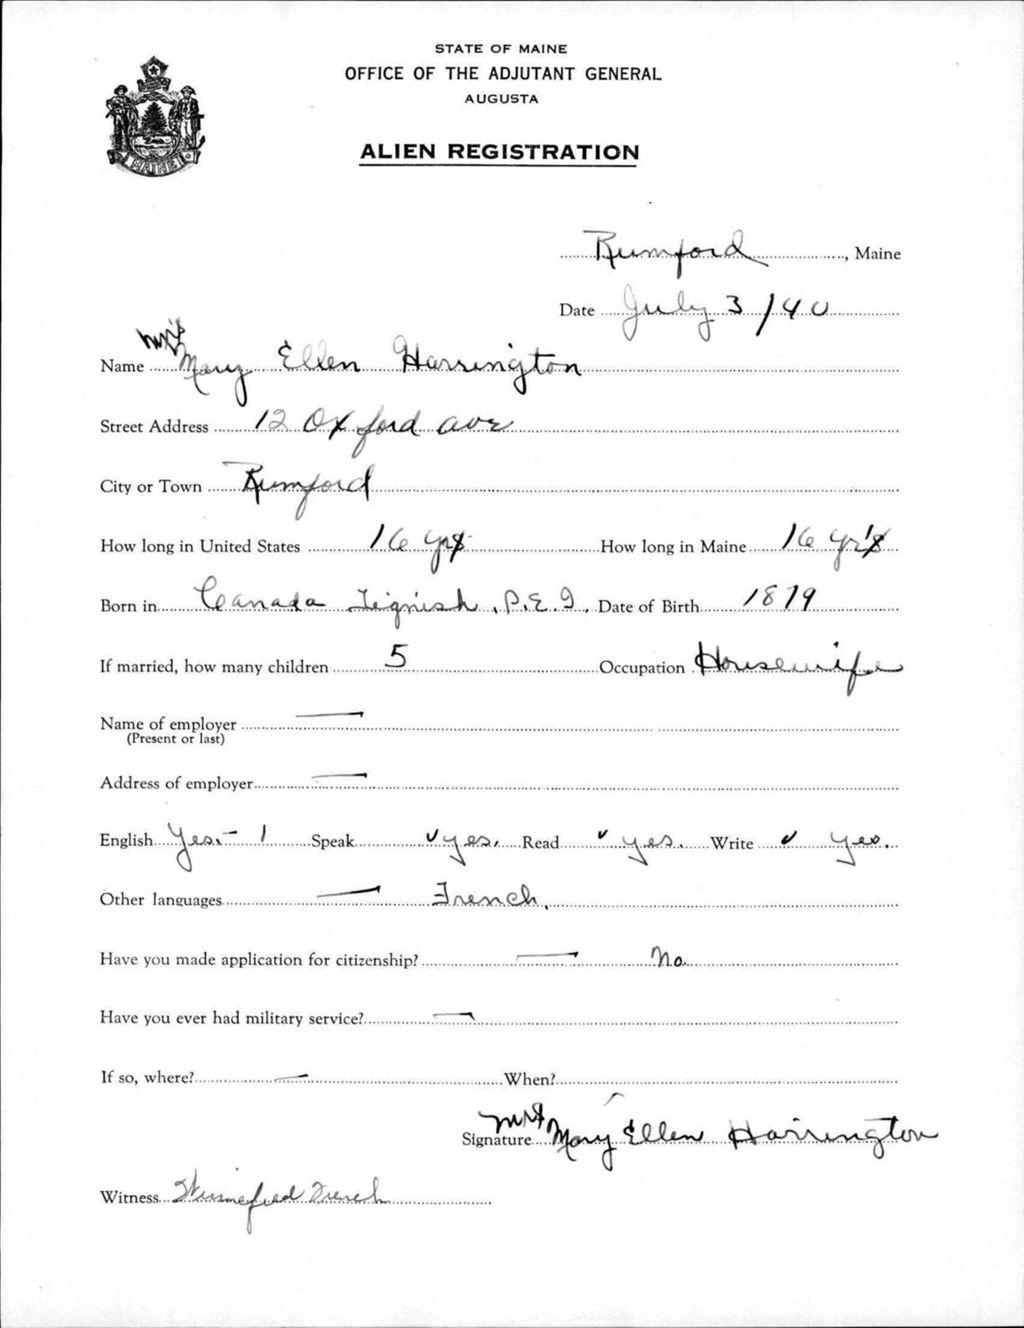 STATE OF MAINE
OFFICE OF THE ADJUTANT GENERAL
AUGUSTA
ALIEN REGISTRATION
Rumford, Maine
Date July 3/40
Name Mrs Mary Ellen Harrington
Street Address 12 Oxford ave
City or Town Rumford
How long in United States 16 yrs How long in Maine 16 yr's
Born in Canada Tignish, P.E.I. Date of Birth 1879
If married, how many children 5 Occupation Housewife
Name of employer —
(Present or last)
Address of employer —
English Yes. - 1 Speak ✓ yes. Read ✓ yes. Write ✓ yes.
Other languages — French.
Have you made application for citizenship? — No.
Have you ever had military service? —
If so, where? — When?
Signature Mrs Mary Ellen Harrington
Witness Winnefred French
MAINE